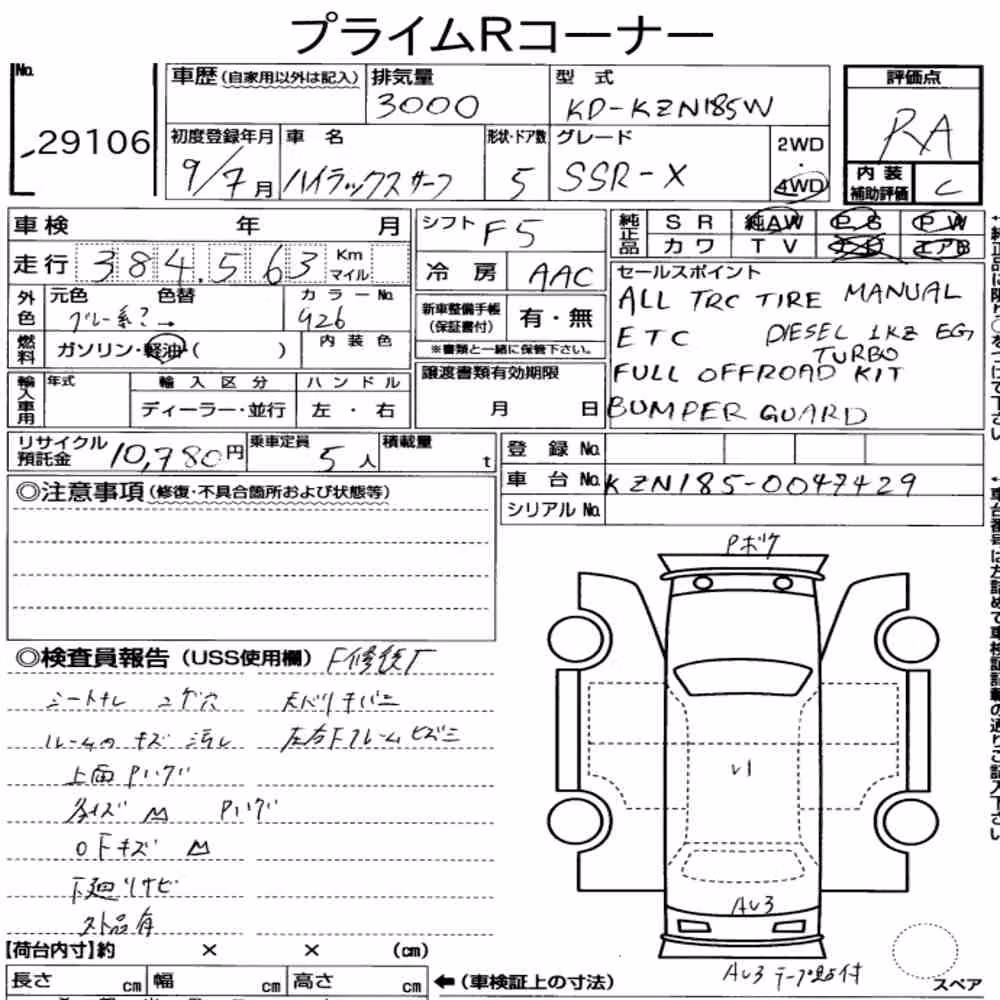 プライムRコーナー
No.
29106
車歴(自家用以外は記入)
排気量
3000
型式
KD-KZN185W
評価点
RA
初度登録年月
9/7月
車名
ハイラックスサーフ
形状・ドア数
5
グレード
SSR-X
2WD
・
4WD
内装
補助評価
C
車検 年 月
シフト F5
純正品
SR 純AW PS PW
カワ TV エアB
走行 384,563 Km
マイル
冷房 AAC
セールスポイント
ALL TRC TIRE MANUAL
ETC DIESEL 1KZ EG
TURBO
FULL OFFROAD KIT
BUMPER GUARD
外色
元色 色替 カラーNo.
グレー系?→ 426
新車整備手帳
(保証書付)
有・無
※書類と一緒に保管下さい。
燃料
ガソリン・軽油・( )
内装色
輸入車用
年式
輸入区分
ハンドル
ディーラー・並行
左・右
譲渡書類有効期限
月 日
リサイクル
預託金
10,780円
乗車定員
5人
積載量
t
登録No.
車台No. KZN185-0047429
シリアルNo.
◎注意事項(修復・不具合箇所および状態等)
◎検査員報告(USS使用欄) F修復歴
シートナレ コゲ穴
ルームのキズ 汚レ
左右Fフレームヒズミ
上面Pハゲ
Pハゲ
下廻リサビ
外品有
Pボケ
U1
AU3
AU3 テープ貼付
【荷台内寸】約 × × (cm)
長さ cm 幅 cm 高さ cm
←(車検証上の寸法)
スペア